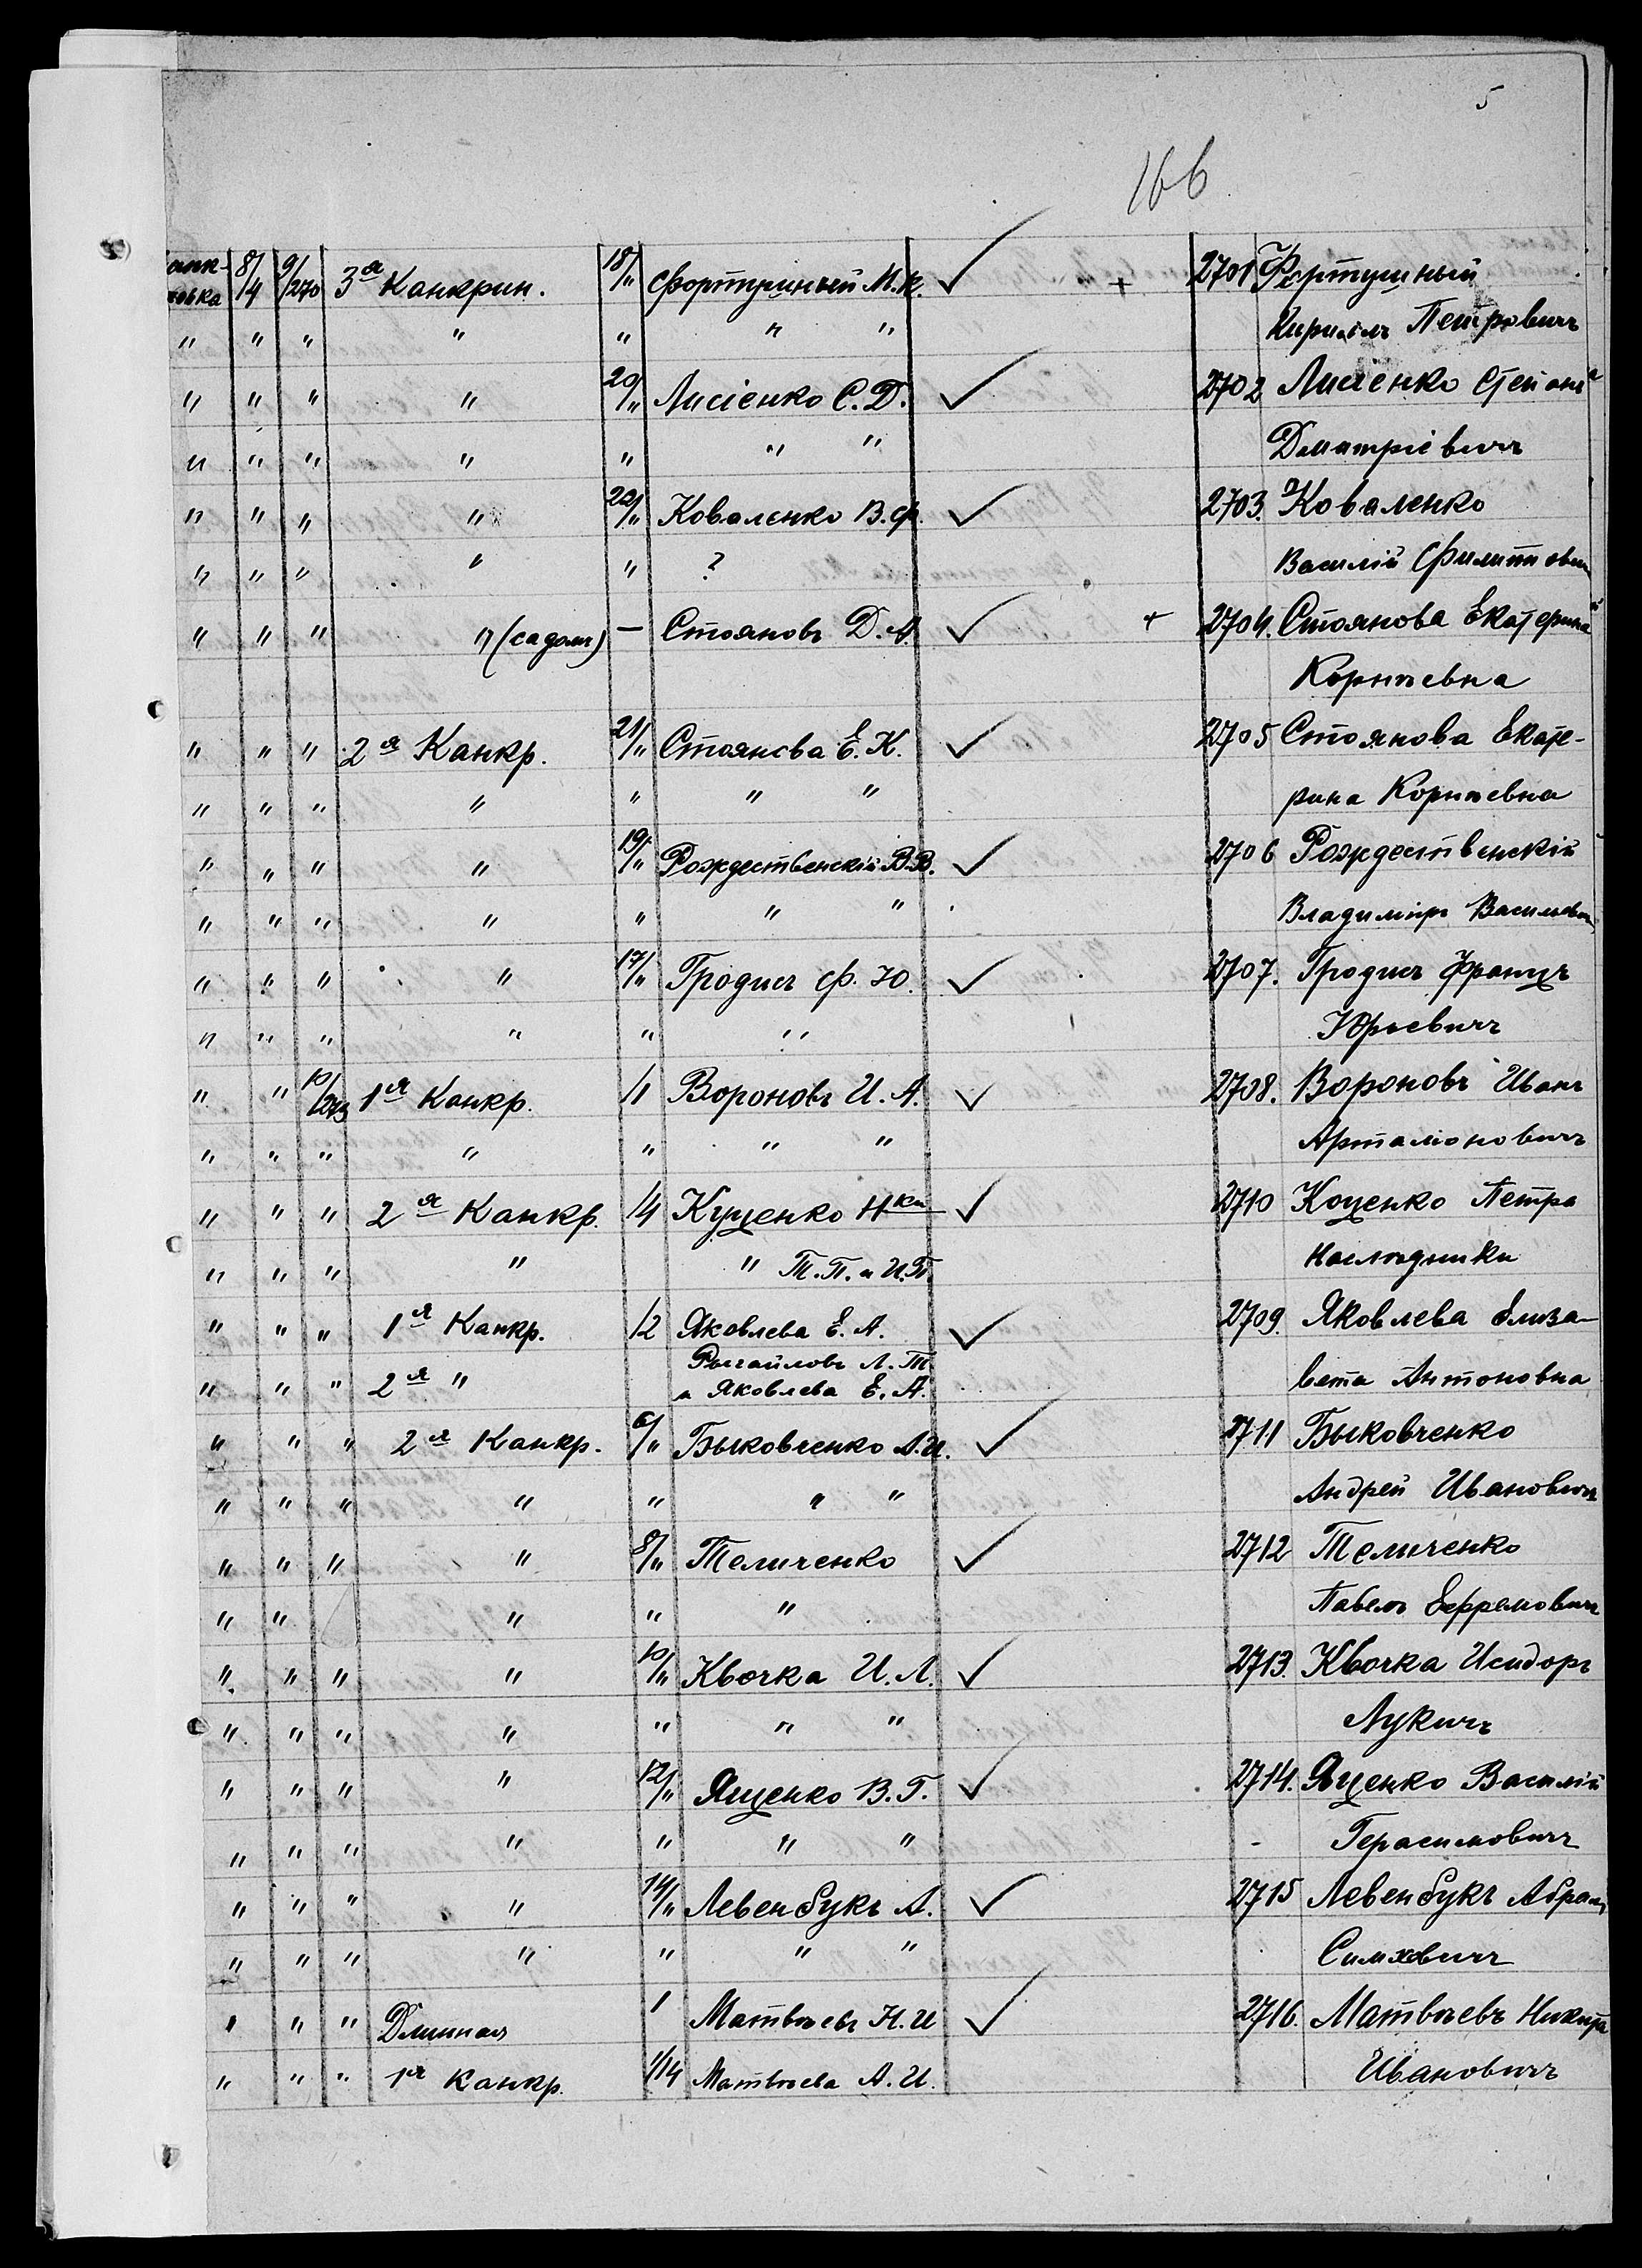 5
166
анк- 8/4 9/270 3я Канкрин. 18/" Фортунный М.К. ✓ + 2701 Фортунный
овка
" " " " " " " Кириллъ Петровичъ
" " " " 20/" Лисіенко С.Д. ✓ 2702 Лисіенко Степанъ
" " " " " " " Дмитріевичъ
" " " " 22/" Коваленко В.Ф. ✓ 2703. Коваленко
" " " " " ? Василій Филиппович
" " " " (садом) — Стояновъ Д.А. ✓ + 2704. Стоянова Екатерина
Корнѣевна
" " " 2я Канкр. 21/" Стоянова Е.К. ✓ 2705 Стоянова Екате-
" " " " " " " рина Корнѣевна
" " " " 19/" Рождественскій В.В. ✓ 2706 Рождественскій
" " " " " " " Владиміръ Васильевич
" " " " 17/" Гродисъ Ф. Ю. ✓ 2707. Гродисъ Францъ
" " " " " " Юрьевичъ
" " 10/273 1я Канкр. /1 Вороновъ И. А. ✓ 2708. Вороновъ Иванъ
" " " " " " " Артамоновичъ
" " " 2я Канкр. /4 Куценко Нки ✓ 2710 Коценко Петра
" " " " " Т.П. и И.П. Наслѣдники
" " " 1я Канкр. /2 Яковлева Е. А. ✓ 2709. Яковлева Елиза-
" " " 2я " Рыгайловъ Л. Т. и Яковлева Е. А. вета Антоновна
" " " 2я Канкр. 6/" Быковченко А.И. ✓ 2711 Быковченко
" " " " " " " Андрей Ивановичъ
" " " " 8/" Теличенко ✓ 2712 Теличенко
" " " " " Павелъ Ефремовичъ
" " " " 10/" Квочка И. Л. ✓ 2713. Квочка Исидоръ
" " " " " " " Лукичъ
" " " " 12/" Яценко В. Г. ✓ 2714. Яценко Василій
" " " " " " " Герасимовичъ
" " " " 14/" Левенбукъ А. ✓ 2715 Левенбукъ Абрам
" " " " " " " Симховичъ
" " " Длинная 1 Матвѣевъ Н. И ✓ 2716. Матвѣевъ Никита
" " " 1я Канкр. 1/14 Матвѣева А. И. Ивановичъ